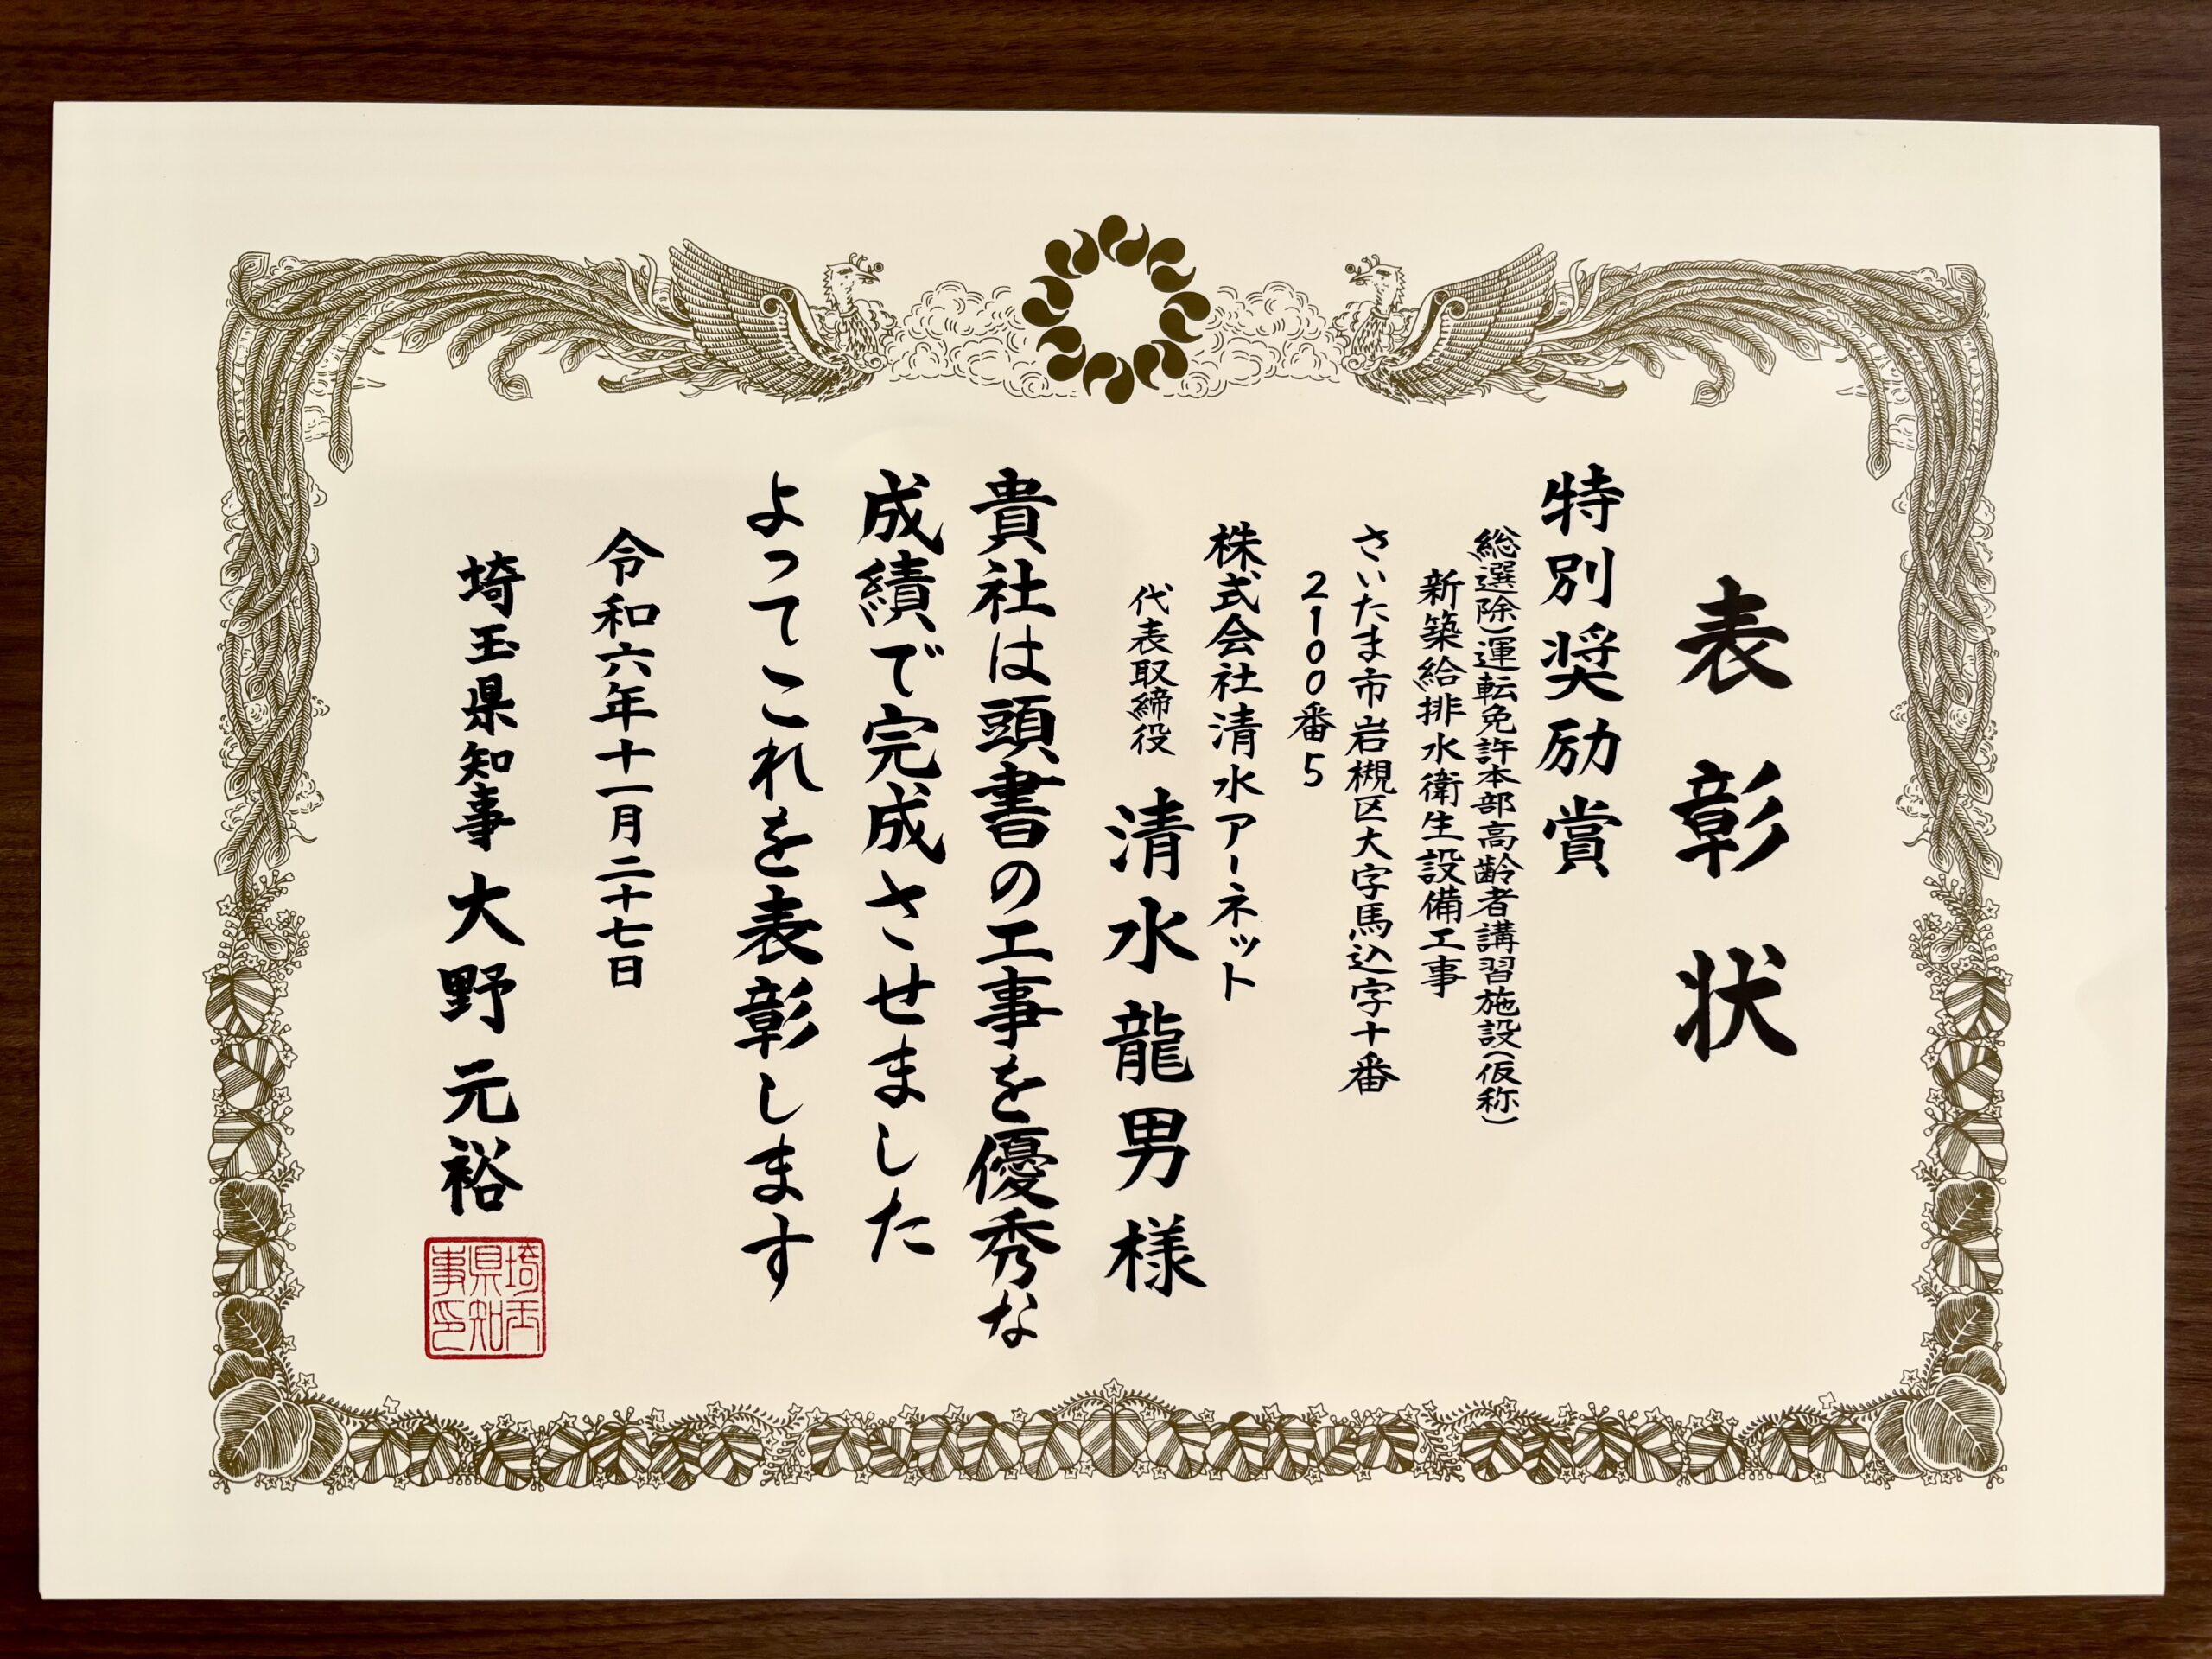 表彰状
特別奨励賞
総選除)運転免許本部高齢者講習施設(仮称)
新築給排水衛生設備工事
さいたま市岩槻区大字馬込字十番
2100番5
株式会社清水アーネット
代表取締役 清水龍男様
貴社は頭書の工事を優秀な
成績で完成させました
よってこれを表彰します
令和六年十一月二十七日
埼玉県知事 大野元裕
埼玉
県知
事印